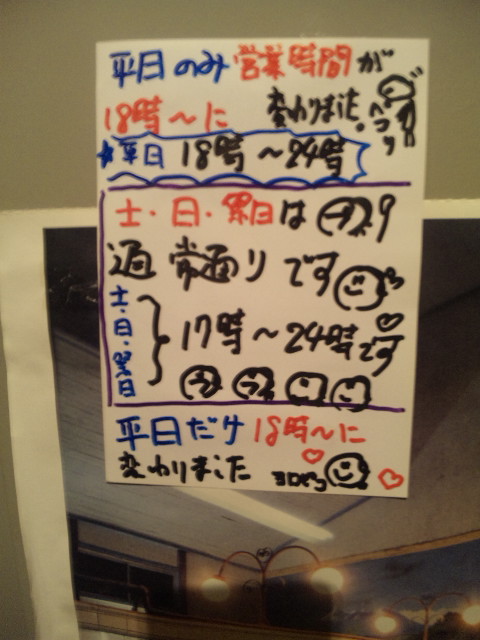 平日のみ営業時間が
18時〜に 変わりました。ペコリ
平日 18時〜24時
土・日・祭日は
通常通りです
土・日・祭日 17時〜24時です
平日だけ18時〜に
変わりました ヨロピク